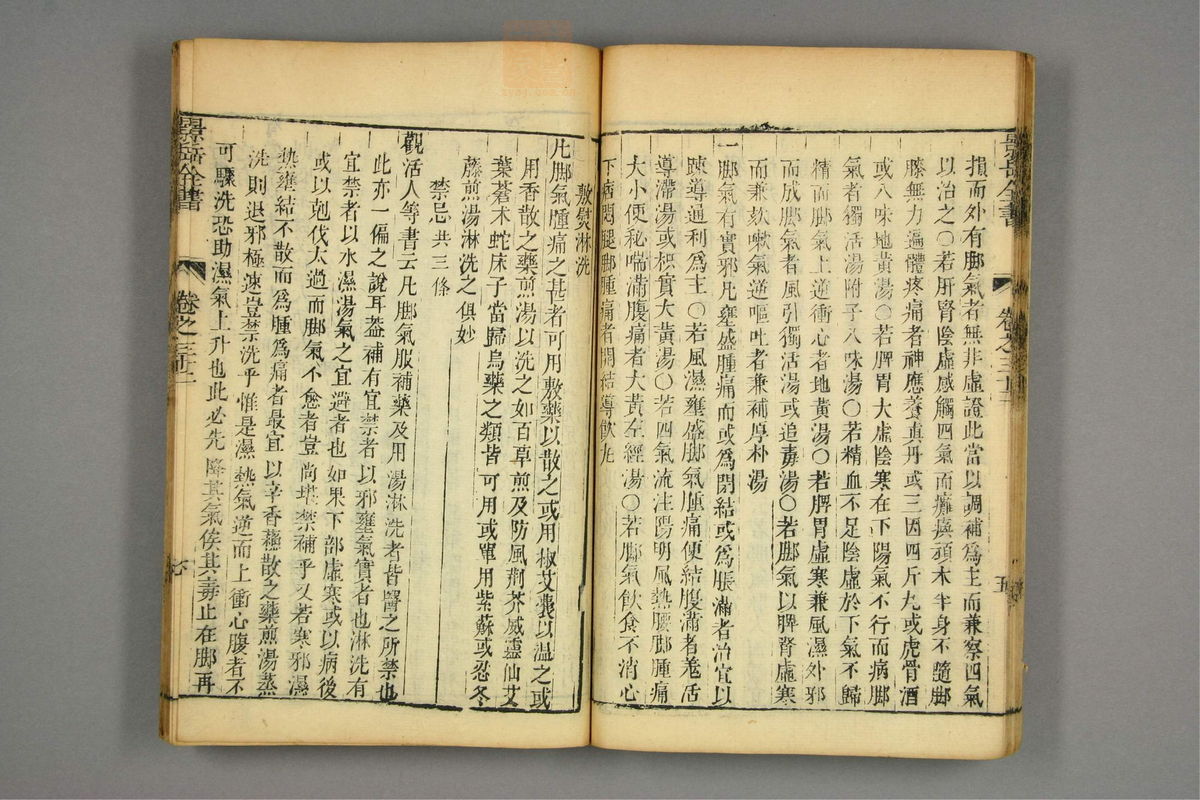 景岳全書
卷之三
五
損而外有脚氣者無非虛證此當以調補爲主而兼察四氣
以治之○若肝腎陰虛感觸四氣而癱瘓頑木半身不隨脚
膝無力遍體疼痛者神應養眞丹或三因四斤丸或虎骨酒
或八味地黃湯○若脾胃大虛陰寒在下陽氣不行而病脚
氣者獨活湯附子八味湯○若精血不足陰虛於下氣不歸
精而脚氣上逆衝心者地黃湯○若脾胃虛寒兼風濕外邪
而成脚氣者風引獨活湯或追毒湯○若脚氣以脾腎虛寒
而兼欬嗽氣逆嘔吐者兼補厚朴湯
一脚氣有實邪凡壅盛腫痛而或爲閉結或爲脹滿者治宜以
踈導通利爲主○若風濕壅盛脚氣腫痛便結腹滿者羗活
導滯湯或枳實大黃湯○若四氣流注陽明風熱腰脚腫痛
大小便秘喘滿腹痛者大黃左經湯○若脚氣飲食不消心
下痞悶腿脚腫痛者開結導飲丸
敷熨淋洗
凡脚氣腫痛之甚者可用敷藥以散之或用椒艾囊以温之或
用香散之藥煎湯以洗之如百草煎及防風荆芥威靈仙艾
葉蒼术蛇床子當歸烏藥之類皆可用或單用紫蘇或忍冬
藤煎湯淋洗之俱妙
禁忌共三條
觀活人等書云凡脚氣服補藥及用湯淋洗者皆醫之所禁也
此亦一偏之說耳葢補有宜禁者以邪壅氣實者也淋洗有
宜禁者以水濕湯氣之宜避者也如果下部虛寒或以病後
或以剋伐太過而脚氣不愈者豈尚堪禁補乎又若寒邪濕
熱壅結不散而爲腫爲痛者最宜以辛香䟽散之藥煎湯蒸
洗則退邪極速豈禁洗乎惟是濕熱氣逆而上衝心腹者不
可驟洗恐助濕氣上升也此必先降其氣俟其毒止在脚再
景岳全書
卷之三十二